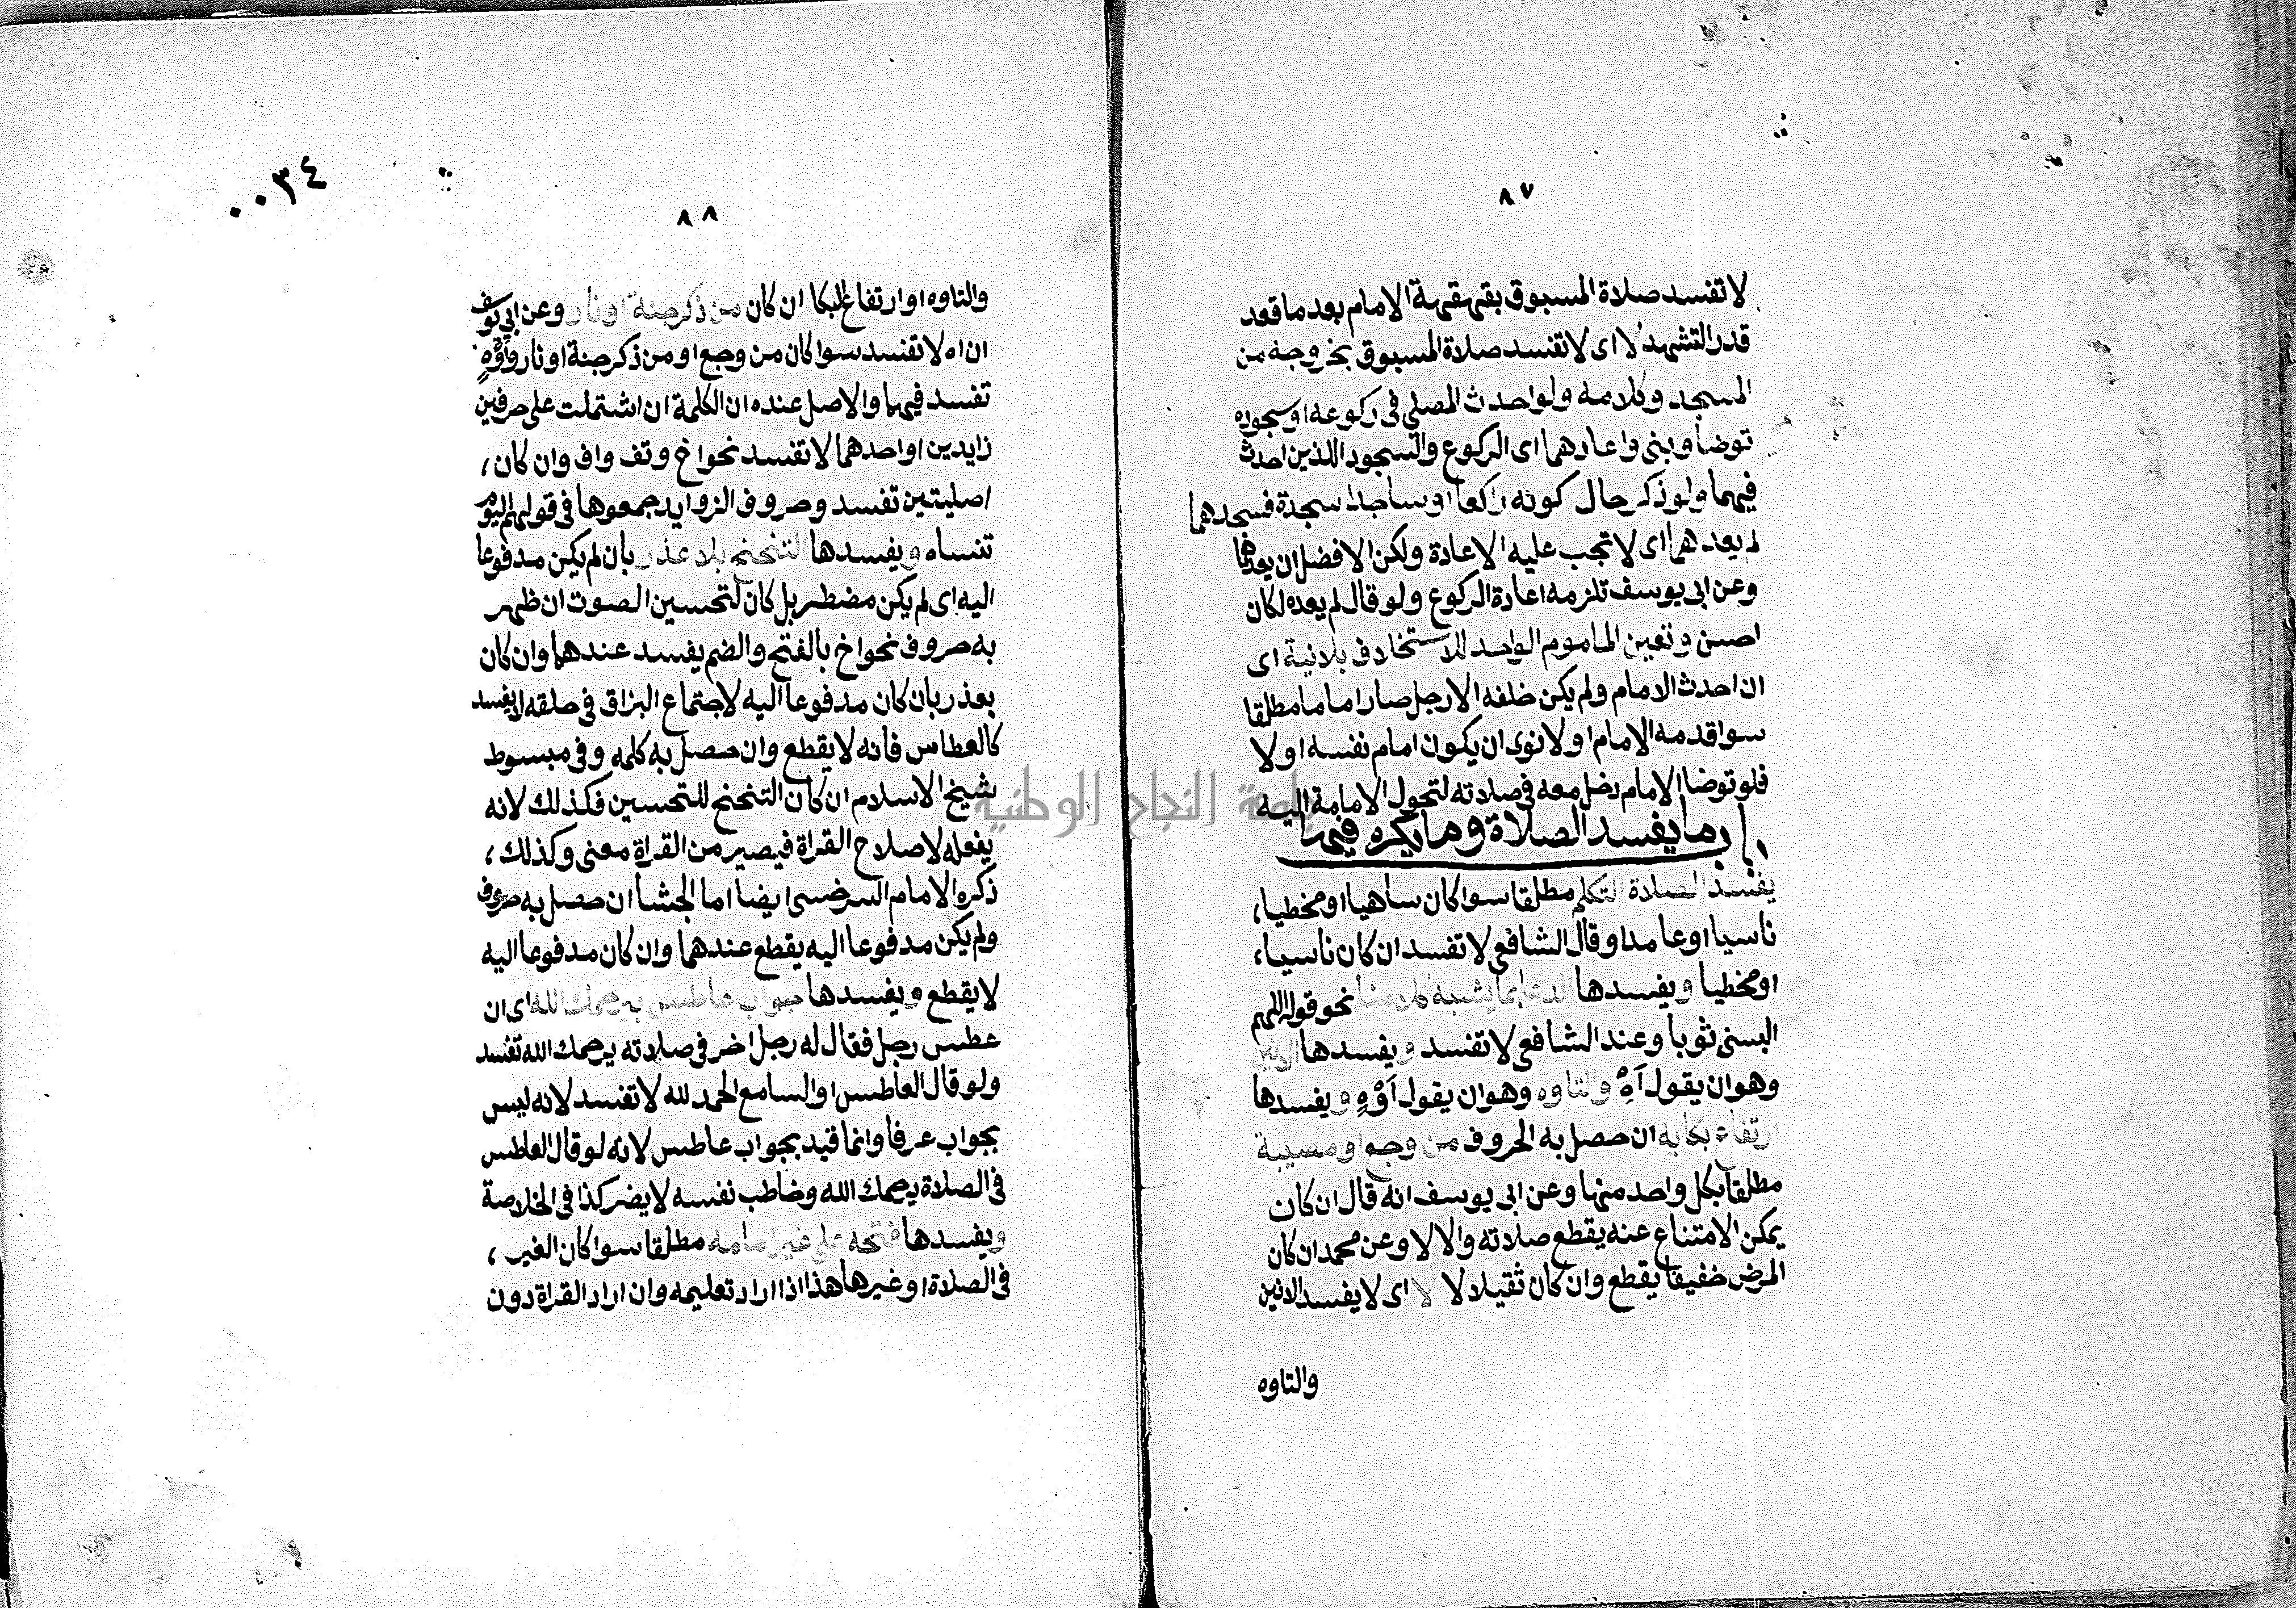 ٨٧
لا تفسد صلاة المسبوق بقهقهة الامام بعد ما قعد
قدر التشهد لا اى لا تفسد صلاة المسبوق بخروجه من
المسجد وكلامه ولو احدث المصلي في ركوعه او سجوده
توضأ وبنى واعادهما اى الركوع والسجود اللذين احدث
فيهما ولو ذكر حال كونه راكعا او ساجدا سجدة فسجدها
لم يعدهما اى لا تجب عليه الاعادة ولكن الافضل ان يعدهما
وعن ابى يوسف تلزمه اعادة الركوع ولو قال لم يعده لكان
احسن وتعين الماموم الواحد للاستخلاف بلا نية اى
ان احدث الامام ولم يكن خلفه الا رجل صار اماما مطلقا
سوا قدمه الامام او لا نوى ان يكون امام نفسه او لا
فلو توضا الامام يضل معه في صلاته لتحول الامامة اليه
باب ما يفسد الصلاة وما يكره فيها
يفسد الصلاة التكلم مطلقا سوا كان ساهيا او مخطيا،
ناسيا او عامدا وقال الشافعي لا تفسد ان كان ناسيا،
او مخطيا ويفسدها الدعا بما يشبه كلامنا نحو قوله اللهم
البسني ثوبا وعند الشافعي لا تفسد ويفسدها الانين
وهو ان يقول آهْ والتاوه وهو ان يقول اَوْهِ ويفسدها
ارتفاع بكايه ان حصل به الحروف من وجع او مصيبة
مطلقا بكل واحد منها وعن ابى يوسف انه قال ان كان
يمكن الامتناع عنه يقطع صلاته والا لا وعن محمد ان كان
المرض خفيفا يقطع وان كان ثقيلا لا لا اى لا يفسد الانين
والتاوه
٨٨
٠٠٣٤
والتاوه او ارتفاع البكا ان كان من ذكر جنة او نار وعن ابي يوسف
ان اه لا تفسد سوا كان من وجع او من ذكر جنة او نار واَوْهِ
تفسد فيهما والاصل عنده ان الكلمة ان اشتملت على حرفين
زايدين او احدهما لا تفسد نحو اخ وتف واف وان كان،
اصليتين تفسد وحروف الزوايد جمعوها في قولهم اليوم
تنساه ويفسدها التنحنح بلا عذر بان لم يكن مدفوعا
اليه اى لم يكن مضطر بل كان لتحسين الصوت ان ظهر
به حروف نحو اخ بالفتح والضم يفسد عندهما وان كان
بعذر بان كان مدفوعا اليه لاجتماع البزاق في حلقه لا يفسد
كالعطاس فانه لا يقطع وان حصل به كلمه وفي مبسوط
شيخ الاسلام ان كان التنحنح للتحسين فكذلك لانه
يفعله لاصلاح القراة فيصير من القراة معنى وكذلك،
ذكره الامام السرخسى ايضا اما الجشأ ان حصل به حروف
ولم يكن مدفوعا اليه يقطع عندهما وان كان مدفوعا اليه
لا يقطع ويفسدها جواب عاطس بيرحمك الله اى ان
عطس رجل فقال له رجل اخر في صلاته يرحمك الله تفسد
ولو قال العاطس او السامع الحمد لله لا تفسد لانه ليس
بجواب عرفا وانما قيد بجواب عاطس لانه لو قال العاطس
في الصلاة يرحمك الله وخاطب نفسه لا يضر كذا في الخلاصة
ويفسدها فتحه على غير امامه مطلقا سوا كان الغير،
في الصلاة او غيرها هذا اذا اراد تعليمه وان اراد القراة دون
جامعة النجاح الوطنية